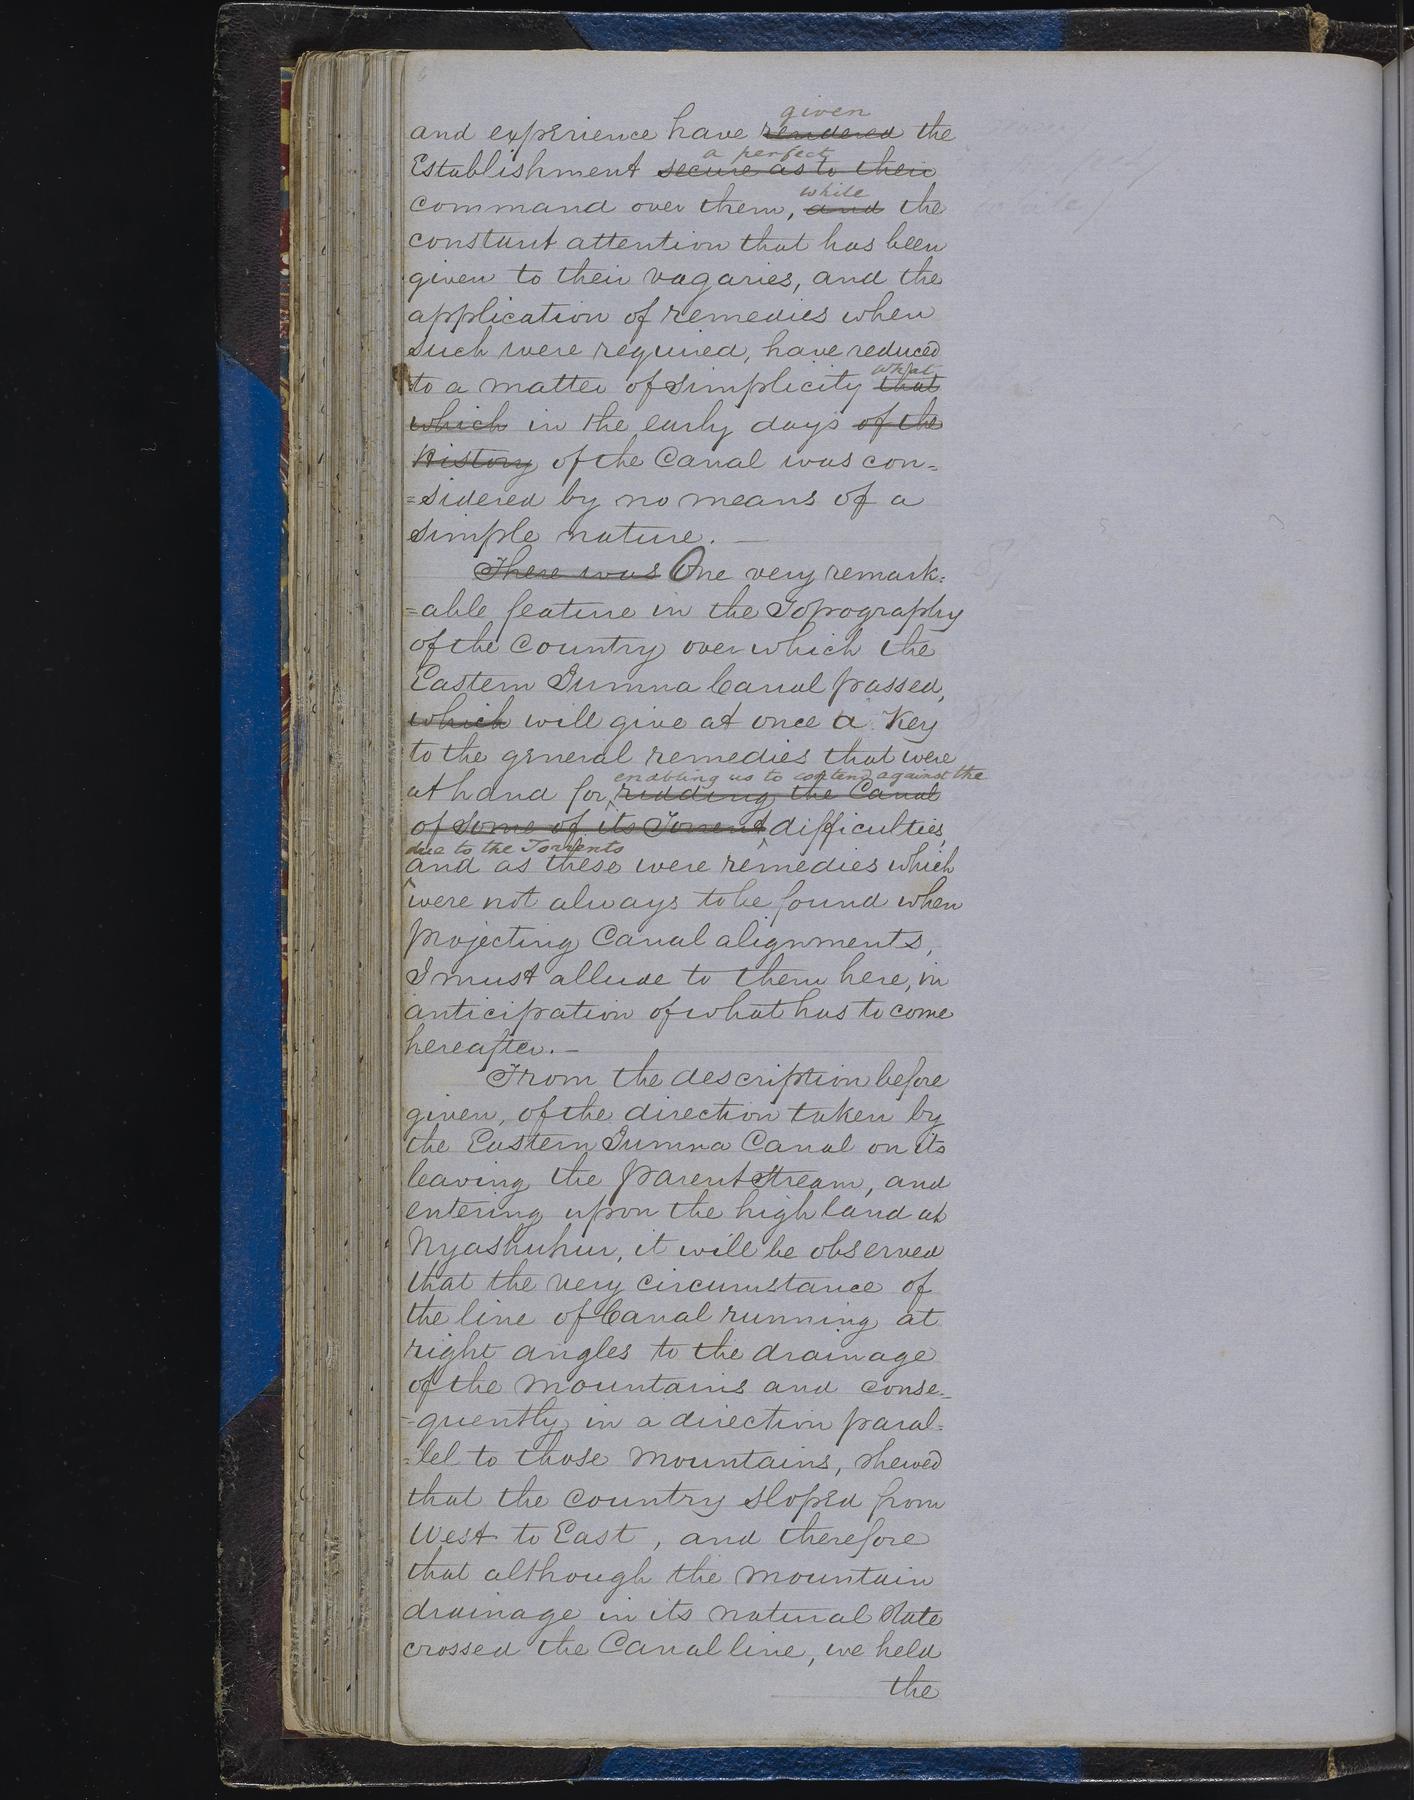 given
and experience have rendered the
a perfect
Establishment secure as to their
while
command over them, and the
constant attention that has been
given to their vagaries, and the
application of remedies when
such were required, have reduced
what
to a matter of simplicity that
which in the early days of the
History of the Canal was con=
=sidered by no means of a
simple nature. —
There was One very remark=
=able feature in the Topography
of the Country over which the
Eastern Jumna Canal passed,
which will give at once a Key
to the general remedies that were
enabling us to contend against the
at hand for ridding the Canal
of some of its Torrent difficulties,
due to the Torrents
and as these were remedies which
were not always to be found when
projecting Canal alignments,
I must allude to them here, in
anticipation of what has to come
hereafter. —
From the description before
given, of the direction taken by
the Eastern Jumna Canal on its
leaving the parent Stream, and
entering upon the high land at
Nyashuhur, it will be observed
that the very circumstance of
the line of Canal running at
right angles to the drainage
of the mountains and conse=
=quently in a direction paral=
=lel to those mountains, shewed
that the country sloped from
West to East, and therefore
that although the mountain
drainage in its natural state
crossed the Canal line, we held
the